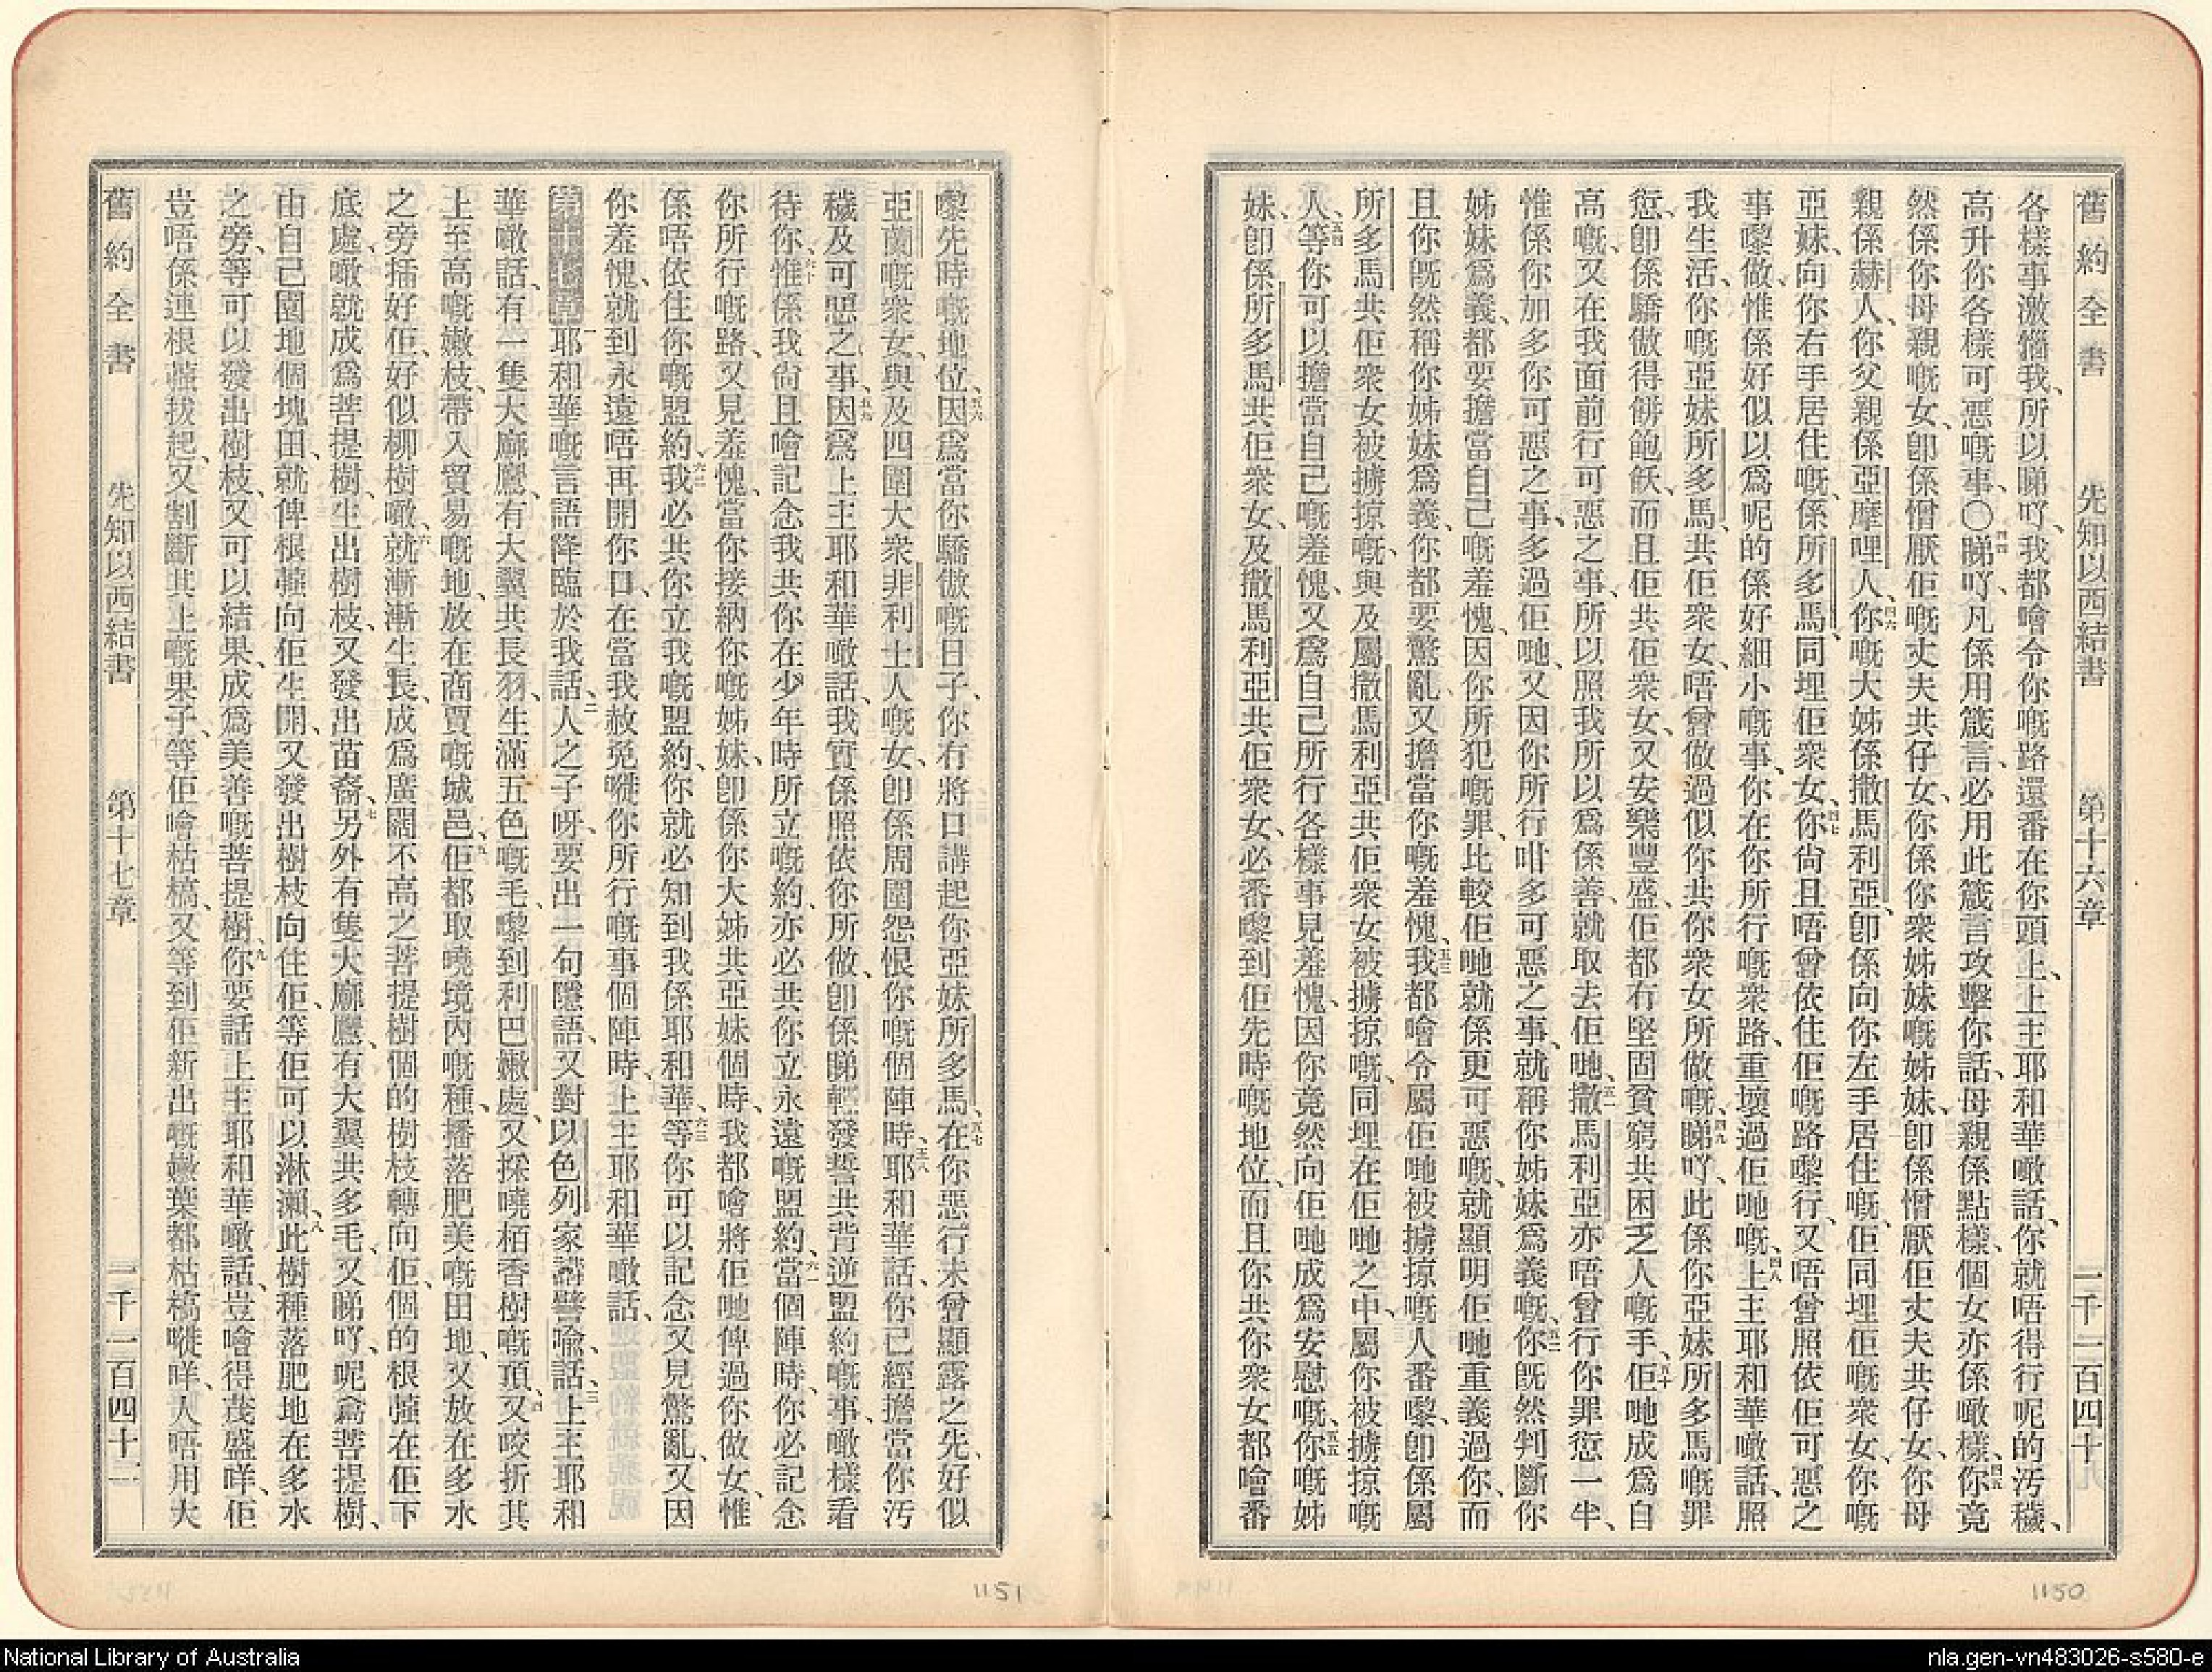 舊約全書 先知以西結書 第十六章 一千一百四十
各樣事激惱我、所以睇吖、我都噲令你嘅路還番在你頭上、上主耶和華噉話、你就唔得行呢的汚穢、
高升你各樣可惡嘅事、〇四四睇吖、凡係用箴言、必用此箴言攻擊你話、母親係點樣、個女亦係噉樣、四五你竟
然係你母親嘅女、卽係憎厭佢嘅丈夫共仔女、你係你衆姊妹嘅姊妹、卽係憎厭佢丈夫共仔女、你母
親係赫人、你父親係亞摩哩人、四六你嘅大姊係撒馬利亞、卽係向你左手居住嘅、佢同埋佢嘅衆女、你嘅
亞妹、向你右手居住嘅、係所多馬、同埋佢衆女、四七你尙且唔曾依住佢嘅路嚟行、又唔曾照依佢可惡之
事嚟做、惟係好似以爲呢的係好細小嘅事、你在你所行嘅衆路、重壞過佢哋嘅、四八上主耶和華噉話、照
我生活、你嘅亞妹所多馬、共佢衆女、唔曾做過似你共你衆女所做嘅、四九睇吖、此係你亞妹所多馬嘅罪
愆、卽係驕傲得餅飽飫、而且佢共佢衆女、又安樂豐盛、佢都冇堅固貧窮共困乏人嘅手、五十佢哋成爲自
高嘅、又在我面前行可惡之事、所以照我所以爲係善、就取去佢哋、五一撒馬利亞亦唔曾行你罪愆一半、
惟係你加多你可惡之事、多過佢哋、又因你所行咁多可惡之事、就稱你姊妹爲義嘅、五二你旣然判斷你
姊妹爲義、都要擔當自己嘅羞愧、因你所犯嘅罪、比較佢哋就係更可惡嘅、就顯明佢哋重義過你、而
且你旣然稱你姊妹爲義、你都要驚亂、又擔當你嘅羞愧、五三我都噲令屬佢哋被擄掠嘅人番嚟、卽係屬
所多馬共佢衆女被擄掠嘅、與及屬撒馬利亞共佢衆女被擄掠嘅、同埋在佢哋之中、屬你被擄掠嘅
人、五四等你可以擔當自己嘅羞愧、又爲自己所行各樣事見羞愧、因你竟然向佢哋成爲安慰嘅、五五你嘅姊
妹、卽係所多馬共佢衆女、及撒馬利亞共佢衆女、必番嚟到佢先時嘅地位、而且你共你衆女都噲番
1150
嚟先時嘅地位、五六因爲當你驕傲嘅日子、你冇將口講起你亞妹所多馬、五七在你惡行未曾顯露之先、好似
亞蘭嘅衆女、與及四圍大衆非利士人嘅女、卽係周圍怨恨你嘅個陣時、五八耶和華話、你已經擔當你汚
穢及可惡之事、五九因爲上主耶和華噉話、我實係照依你所做、卽係睇輕發誓共背逆盟約嘅事、噉樣看
待你、六十惟係我尙且噲記念我共你在少年時所立嘅約、亦必共你立永遠嘅盟約、六一當個陣時、你必記念
你所行嘅路、又見羞愧、當你接納你嘅姊妹、卽係你大姊共亞妹個時、我都噲將佢哋俾過你做女、惟
係唔依住你嘅盟約、六二我必共你立我嘅盟約、你就必知到我係耶和華、六三等你可以記念又見驚亂、又因
你羞愧、就到永遠唔再開你口、在當我赦免嘥你所行嘅事個陣時、上主耶和華噉話、
第十七章 一耶和華嘅言語降臨於我話、二人之子呀、要出一句隱語、又對以色列家講譬喩、話、三上主耶和
華噉話、有一隻大廰鷹、有大翼共長羽、生滿五色嘅毛、嚟到利巴嫩處、又採嘵栢香樹嘅頂、四又咬折其
上至高嘅嫩枝、帶入貿易嘅地、放在商賈嘅城邑、五佢都取嘵境內嘅種、播落肥美嘅田地、又放在多水
之旁、插好佢、好似柳樹噉、六就漸漸生長、成爲廣闊不高之菩提樹、個的樹枝轉向佢、個的根蘕在佢下
底處、噉就成爲菩提樹、生出樹枝、又發出苗裔、七另外有隻大廰鷹、有大翼共多毛、又睇吖、呢龠菩提樹、
由自己園地個塊田、就俾根蘕向佢生開、又發出樹枝向住佢、等佢可以淋灑、八此樹種落肥地在多水
之旁、等可以發出樹枝、又可以結果、成爲美善嘅菩提樹、九你要話、上主耶和華噉話、豈噲得茂盛咩、佢
豈唔係連根蘕拔起、又割斷共上嘅果子、等佢噲枯槁、又等到佢新出嘅嫩葉都枯槁嘥咩、人唔用大
舊約全書 先知以西結書 第十七章 一千一百四十一
1151
National Library of Australia
nla.gen-vn483026-s580-e